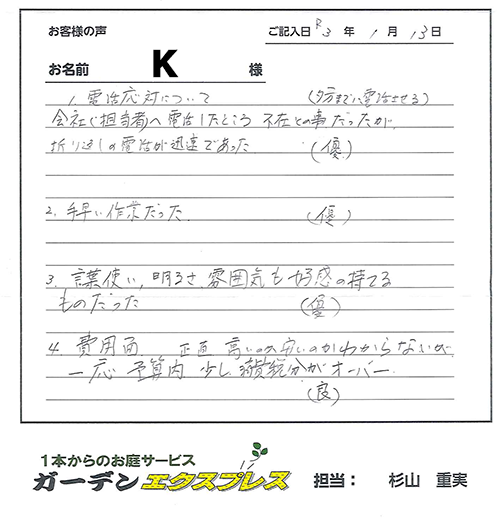 お客様の声
ご記入日 R3 年 1 月 13 日
お名前 K 様
1. 電話応対について (夕方までに電話させる)
会社(担当者)へ電話したところ 不在との事だったが、
折り返しの電話が迅速であった (優)
2. 手早い作業だった (優)
3. 言葉使い, 明るさ, 雰囲気も好感の持てる
ものだった (優)
4. 費用面 正直 高いのか安いのかわからないが
一応 予算内 少し 消費税分がオーバー.
(良)
1本からのお庭サービス
ガーデンエクスプレス 担当： 杉山 重実